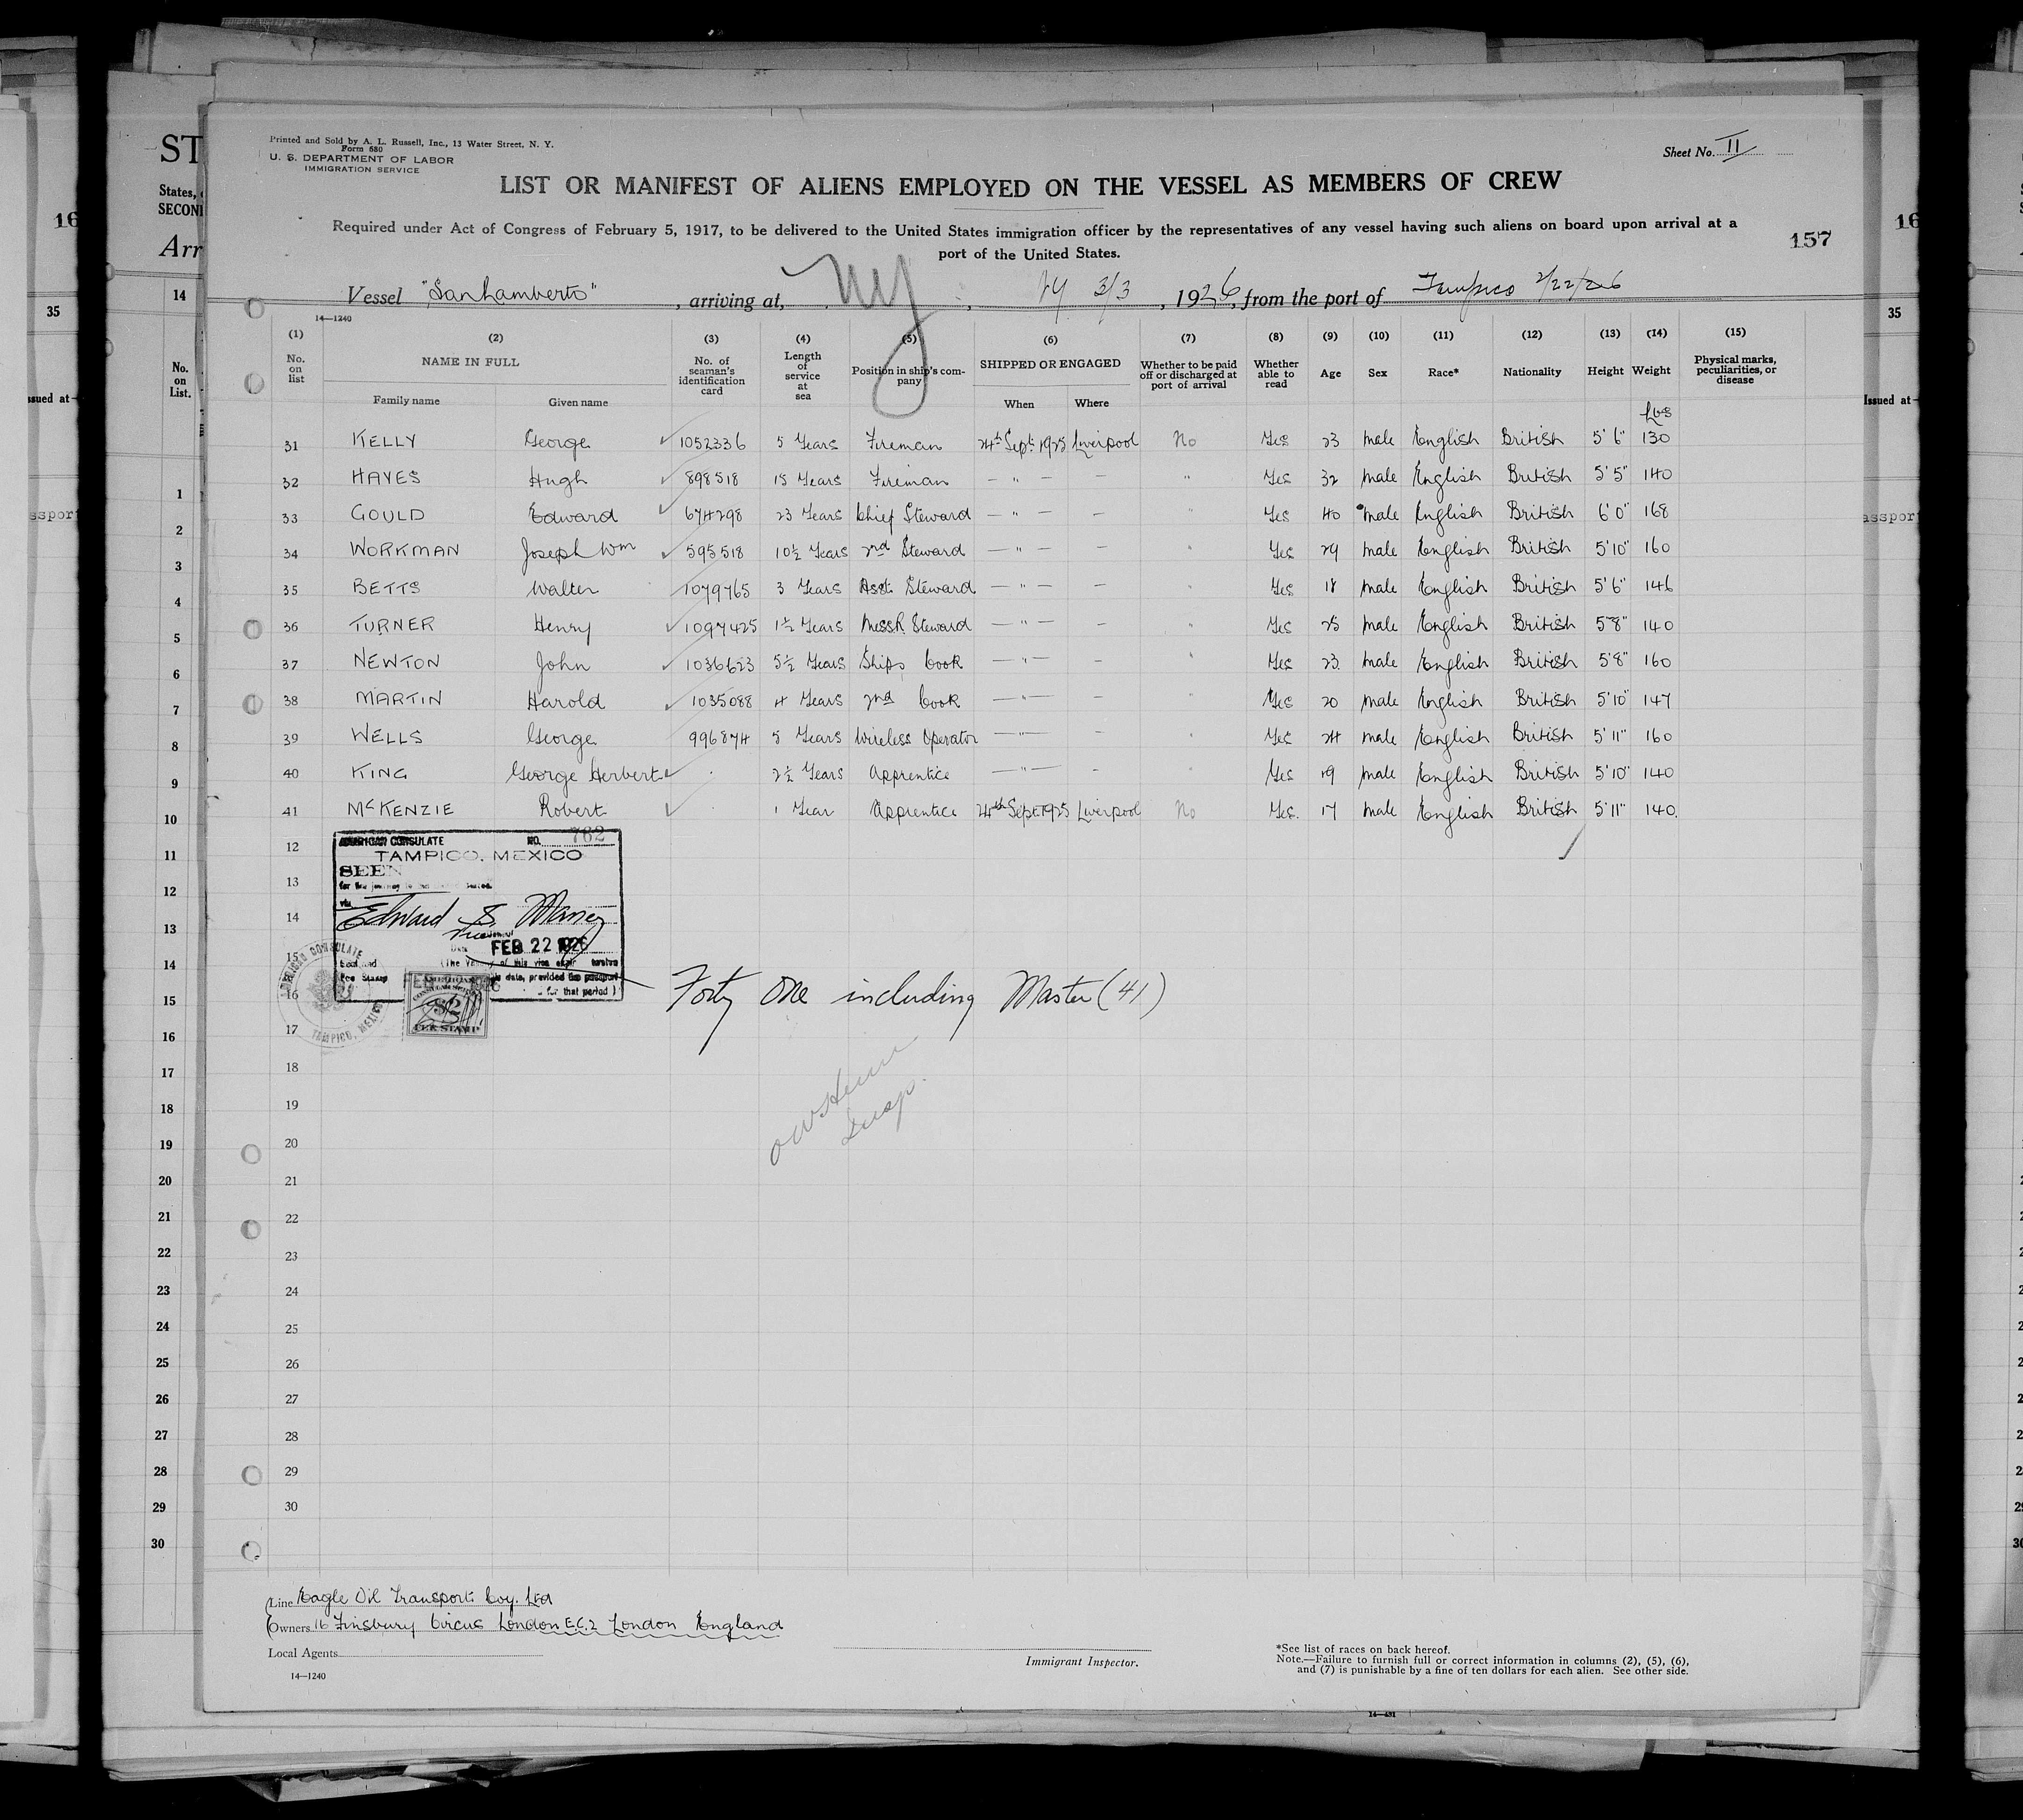 Printed and Sold by A. L. Russell, Inc., 13 Water Street, N. Y.
Form 680
U. S. DEPARTMENT OF LABOR
IMMIGRATION SERVICE
Sheet No. II
LIST OR MANIFEST OF ALIENS EMPLOYED ON THE VESSEL AS MEMBERS OF CREW
Required under Act of Congress of February 5, 1917, to be delivered to the United States immigration officer by the representatives of any vessel having such aliens on board upon arrival at a
port of the United States.
157
Vessel "San Lamberto", arriving at, NY, 3/3, 1926, from the port of Tampico 2/22/26
14—1240
(1) (2) (3) (4) (5) (6) (7) (8) (9) (10) (11) (12) (13) (14) (15)
No. on list NAME IN FULL No. of seaman's identification card Length of service at sea Position in ship's company SHIPPED OR ENGAGED Whether to be paid off or discharged at port of arrival Whether able to read Age Sex Race* Nationality Height Weight Physical marks, peculiarities, or disease
Family name Given name When Where
Lbs
31 KELLY George 1052336 5 Years Fireman 24th Sept 1925 Liverpool No Yes 23 Male English British 5'6" 130
32 HAYES Hugh 898518 15 Years Fireman — " — — " Yes 32 Male English British 5'5" 140
33 GOULD Edward 674298 23 Years Chief Steward — " — — " Yes 40 Male English British 6'0" 168
34 WORKMAN Joseph Wm 595518 10½ Years 2nd Steward — " — — " Yes 29 Male English British 5'10" 160
35 BETTS Walter 1079765 3 Years Asst. Steward — " — — " Yes 18 Male English British 5'6" 146
36 TURNER Henry 1097425 1½ Years MessR. Steward — " — — " Yes 25 Male English British 5'8" 140
37 NEWTON John 1036623 5½ Years Ships Cook — " — — " Yes 23 Male English British 5'8" 160
38 MARTIN Harold 1035088 4 Years 2nd Cook — " — — " Yes 20 Male English British 5'10" 147
39 WELLS George 996874 5 Years Wireless Operator — " — — " Yes 24 Male English British 5'11" 160
40 KING George Herbert 2½ Years Apprentice — " — — " Yes 19 Male English British 5'10" 140
41 McKENZIE Robert 1 Year Apprentice 24th Sept 1925 Liverpool No Yes. 17 Male English British 5'11" 140.
AMERICAN CONSULATE NO. 762
TAMPICO, MEXICO
SEEN
for the journey to the United States.
via
Edward S. Maney
Date FEB 22 1926
AMERICAN CONSULATE
TAMPICO, MEXICO
$2
FEE STAMP
Forty One including Master (41)
Insp.
12
13
14
15
16
17
18
19
20
21
22
23
24
25
26
27
28
29
30
Line Eagle Oil Transport Coy. Ltd
Owners 16 Finsbury Circus London E.C.2 London England
Local Agents
14—1240
Immigrant Inspector.
*See list of races on back hereof.
Note.—Failure to furnish full or correct information in columns (2), (5), (6),
and (7) is punishable by a fine of ten dollars for each alien. See other side.